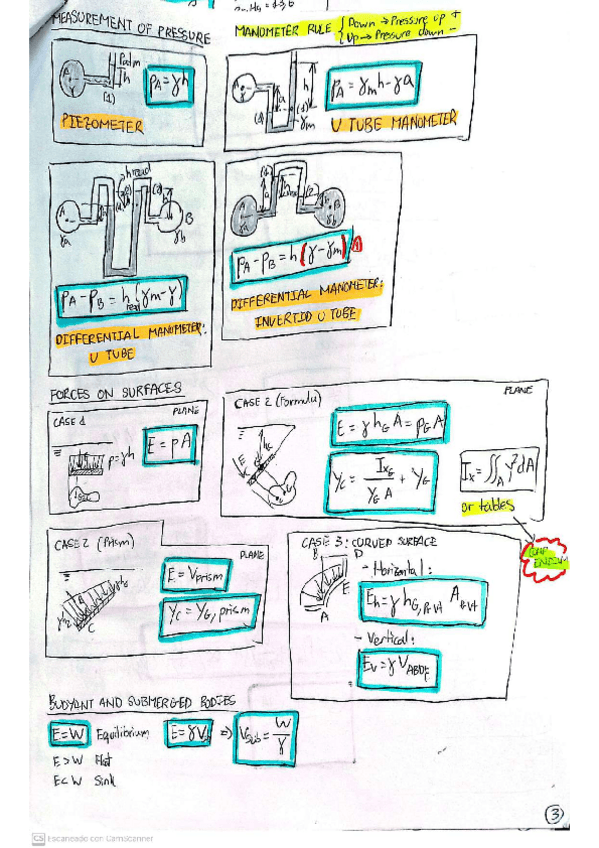 MEASUREMENT OF PRESSURE
MANOMETER RULE { Down → Pressure up +
Up → Pressure down -
Patm
h
A
(1)
PA = γh
PIEZOMETER
A
a
h
(1)
γm
PA = γm h - γa
U TUBE MANOMETER
h read
A
γa
B
γb
PA - PB = h read (γm - γ)
DIFFERENTIAL MANOMETER:
U TUBE
A
B
PA - PB = h (γ - γm)
DIFFERENTIAL MANOMETER:
INVERTID U TUBE
FORCES ON SURFACES
CASE 1
PLANE
p = γh
E = pA
CASE 2 (Formula)
PLANE
hG
E
E = γ hG A = pG A
yC = IxG / yG A + yG
Ix = ∬A y² dA
or tables
CASE 2 (Prism)
PLANE
C
E = Vprism
yC = yG, prism
CASE 3: CURVED SURFACE
B
D
E
A
- Horizontal:
Eh = γ hG, Pr vt A Pr vt
- Vertical:
Ev = γ VABDE
BUOYANT AND SUBMERGED BODIES
E = W Equilibrium E = γVs ⇒ Vsub = W / γ
E > W Flot
E < W Sink
3
CS Escaneado con CamScanner